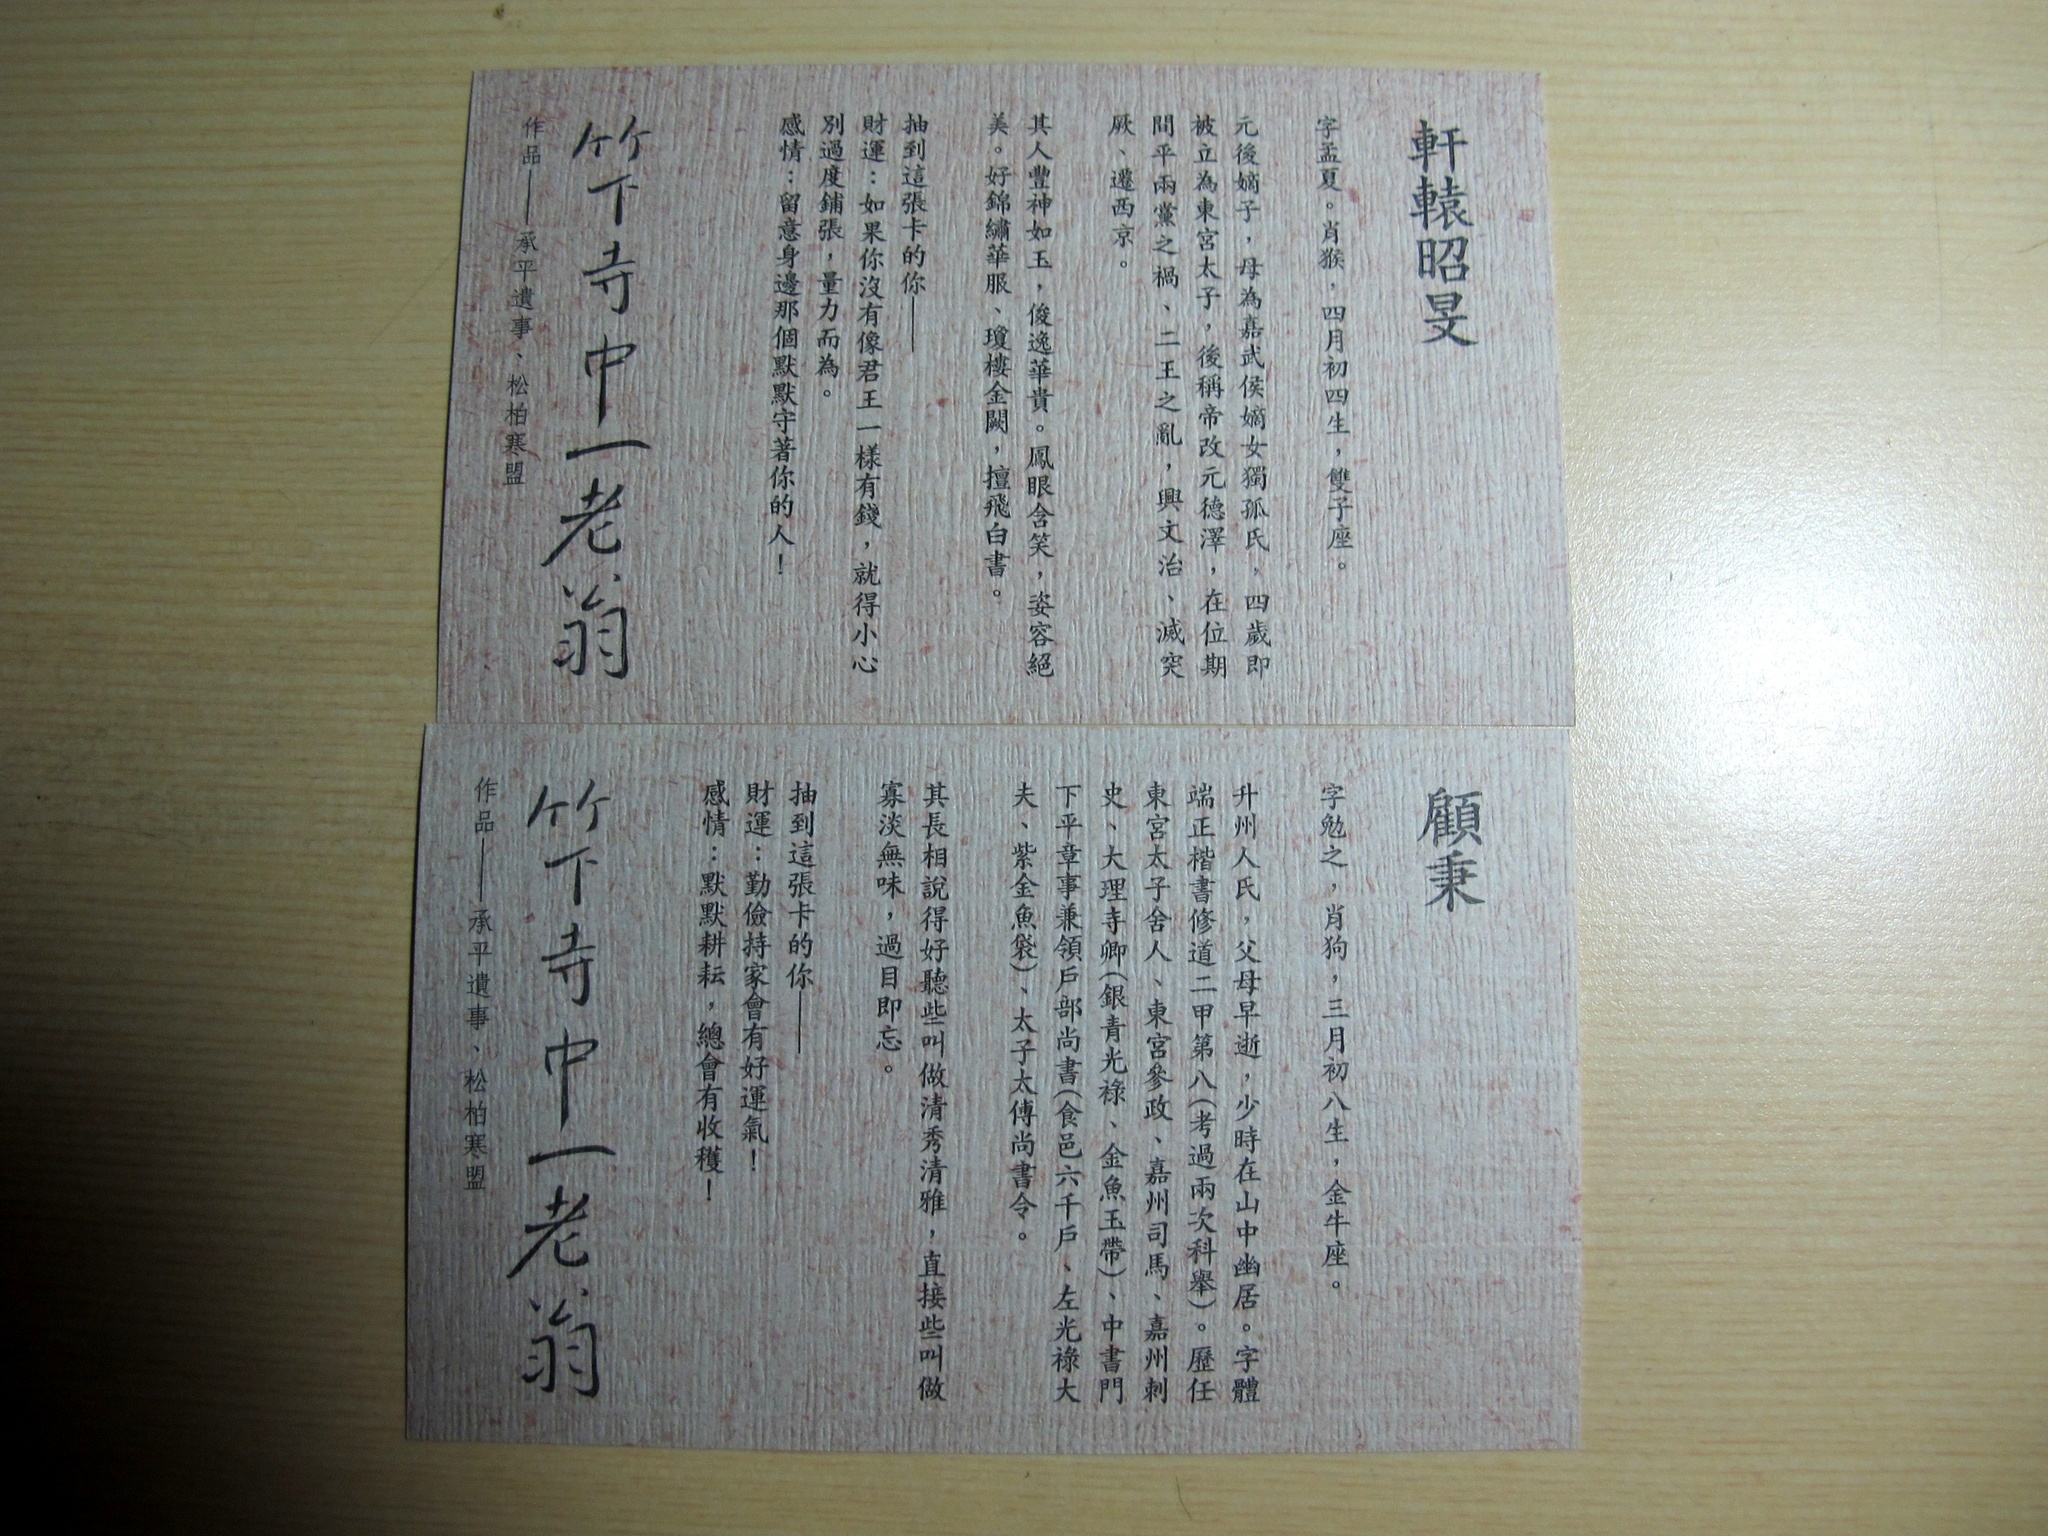 軒轅昭旻
字孟夏。肖猴，四月初四生，雙子座。
元後嫡子，母為嘉武侯嫡女獨孤氏，四歲即
被立為東宮太子，後稱帝改元德澤，在位期
間平兩黨之禍、二王之亂，興文治、滅突
厥、遷西京。
其人豐神如玉，俊逸華貴。鳳眼含笑，姿容絕
美。好錦繡華服、瓊樓金闕，擅飛白書。
抽到這張卡的你——
財運：如果你沒有像君王一樣有錢，就得小心
別過度鋪張，量力而為。
感情：留意身邊那個默默守著你的人！
竹下寺中一老翁
作品——承平遺事、松柏寒盟
顧秉
字勉之，肖狗，三月初八生，金牛座。
升州人氏，父母早逝，少時在山中幽居。字體
端正楷書修道二甲第八(考過兩次科舉)。歷任
東宮太子舍人、東宮參政、嘉州司馬、嘉州刺
史、大理寺卿(銀青光祿、金魚玉帶)、中書門
下平章事兼領戶部尚書(食邑六千戶、左光祿大
夫、紫金魚袋)、太子太傅尚書令。
其長相說得好聽些叫做清秀清雅，直接些叫做
寡淡無味，過目即忘。
抽到這張卡的你——
財運：勤儉持家會有好運氣！
感情：默默耕耘，總會有收穫！
竹下寺中一老翁
作品——承平遺事、松柏寒盟